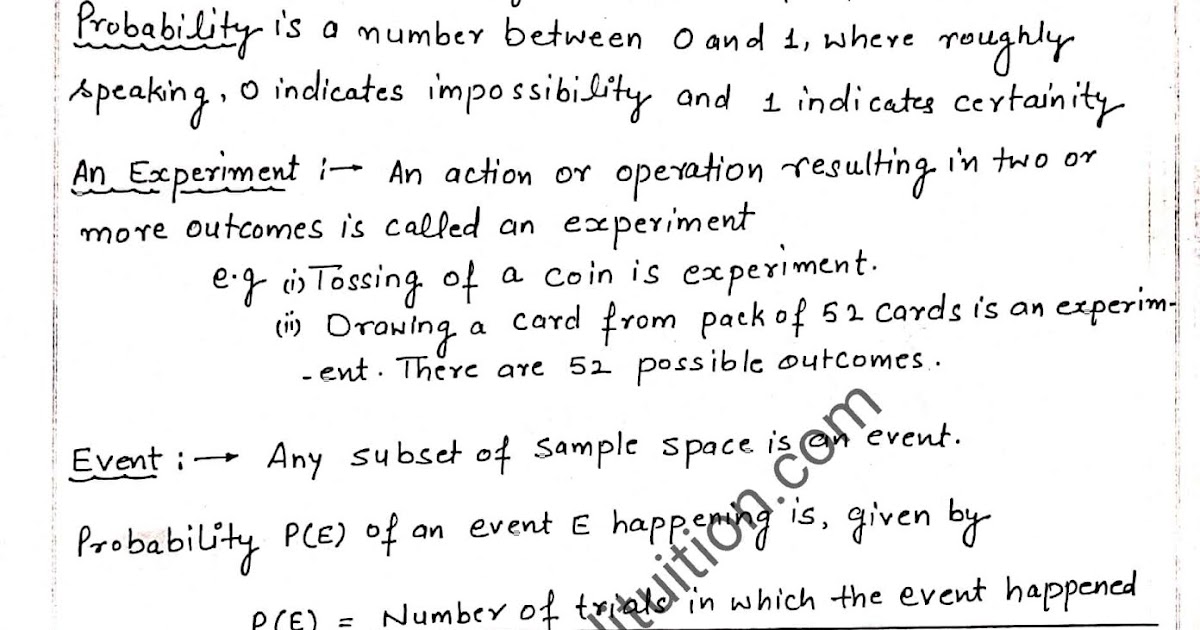 Probability is a number between 0 and 1, where roughly
speaking, 0 indicates impossibility and 1 indicates certainity
An Experiment :→ An action or operation resulting in two or
more outcomes is called an experiment
e.g (i) Tossing of a coin is experiment.
(ii) Drawing a card from pack of 52 cards is an experim-
-ent. There are 52 possible outcomes.
Event :→ Any subset of sample space is an event.
Probability P(E) of an event E happening is, given by
P(E) = Number of trials in which the event happened
tuition.com